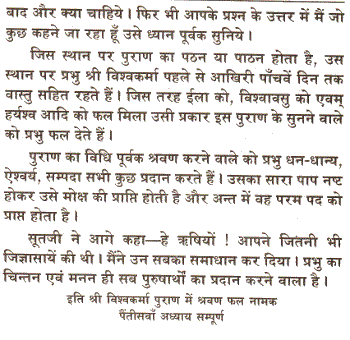 बाद और क्या चाहिये। फिर भी आपके प्रश्न के उत्तर में मैं जो
कुछ कहने जा रहा हूँ उसे ध्यान पूर्वक सुनिये।
जिस स्थान पर पुराण का पठन या पाठन होता है, उस
स्थान पर प्रभु श्री विश्वकर्मा पहले से आखिरी पाँचवें दिन तक
वास्तु सहित रहते हैं। जिस तरह ईला को, विश्वावसु को एवम्
हर्यश्व आदि को फल मिला उसी प्रकार इस पुराण के सुनने वाले
को प्रभु फल देते हैं।
पुराण का विधि पूर्वक श्रवण करने वाले को प्रभु धन-धान्य,
ऐश्वर्य, सम्पदा सभी कुछ प्रदान करते हैं। उसका सारा पाप नष्ट
होकर उसे मोक्ष की प्राप्ति होती है और अन्त में वह परम पद को
प्राप्त होता है।
सूतजी ने आगे कहा—हे ऋषियों ! आपने जितनी भी
जिज्ञासायें की थी। मैंने उन सबका समाधान कर दिया। प्रभु का
चिन्तन एवं मनन ही सब पुरुषार्थों का प्रदान करने वाला है।
इति श्री विश्वकर्मा पुराण में श्रवण फल नामक
पैंतीसवाँ अध्याय सम्पूर्ण